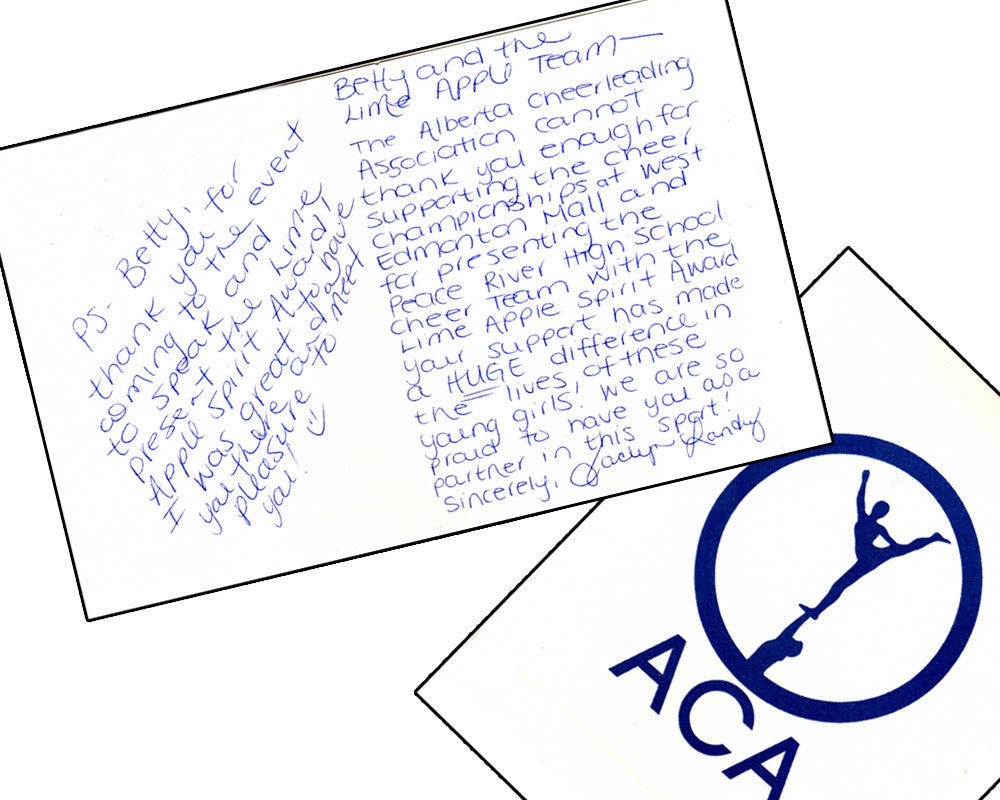 Betty and the
Lime Apple Team—
The Alberta Cheerleading
Association cannot
thank you enough for
supporting the Cheer
Championships at West
Edmonton Mall and
for presenting the
Peace River High School
Cheer Team with the
Lime Apple Spirit Award
your support has made
a HUGE difference in
the lives, of these
young girls. We are so
proud to have you as a
partner in this sport!
Sincerely, Jaclyn Landry
PS- Betty,
thank you for
coming to the event
to speak and
present the Lime
Apple Spirit Award,
I was great to have
you there and a
pleasure to meet
you! ☺
ACA